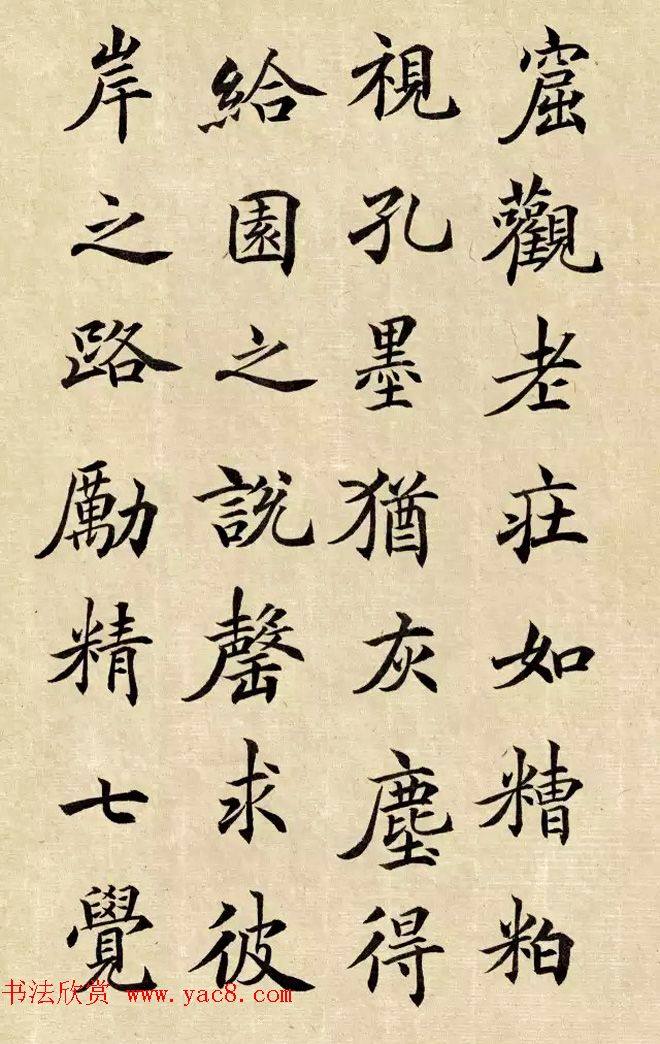 窟觀老莊如糟粕
視孔墨猶灰塵得
給園之説罄求彼
岸之路勵精七覺
书法欣赏 www.yac8.com